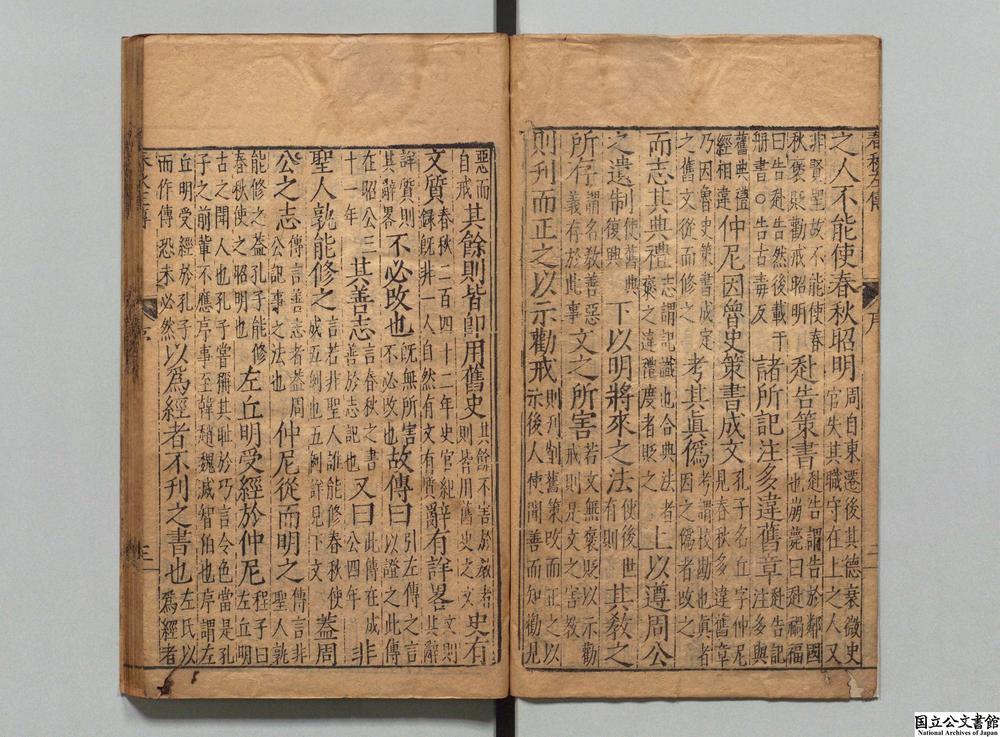 春秋左傳
序
二
之人不能使春秋昭明周自東遷後其德衰微史官失其職守在上之人又
非賢聖故不能使春秋褒貶勸戒昭明赴告策書赴告謂告於鄰國也崩薨曰赴禍福
曰告赴告然後載于册書○告古毒反諸所記注多違舊章赴告記注多與
舊典禮經相違仲尼因魯史策書成文孔子名丘字仲尼見春秋多違舊章
乃因魯史策書成定之舊文從而修之考其眞僞考謂校勘也眞者因之僞者改之
而志其典禮志謂記識也合典法者褒之違禮度者貶之上以遵周公
之遺制使舊典復興下以明將來之法使後世有則其教之
所存謂名教善惡義存於此事文之所害若文無褒貶以示勸戒則是文之害教
則刊而正之以示勸戒則刋削舊策改而正之以示後人使聞善而知勸見
惡而自戒其餘則皆卽用舊史其餘不害於教者則皆用舊史之文史有
文質春秋二百四十二年史官紀錄旣非一人自然有文有質辭有詳畧文則其辭
詳質則其辭畧不必改也旣無所害不必改也故傳曰引左傳之言以證之此傳
在昭公三十一年其善志言春秋之書善於志記也又曰此傳在成公四年非
聖人孰能修之言若非聖人誰能修春秋使成五例也五例詳見下文蓋周
公之志傳言善志者蓋周公記事之法也仲尼從而明之傳言非聖人孰
能修之蓋孔子能修春秋使之昭明也左丘明受經於仲尼程子曰左丘明
古之聞人也孔子嘗稱其耻於巧言令色當是孔子之前輩不應序事至韓趙魏滅智伯也序謂左
丘明受經於孔子而作傳恐未必然以爲經者不刊之書也左氏以爲經者
春秋左傳
序
三
国立公文書館
National Archives of Japan